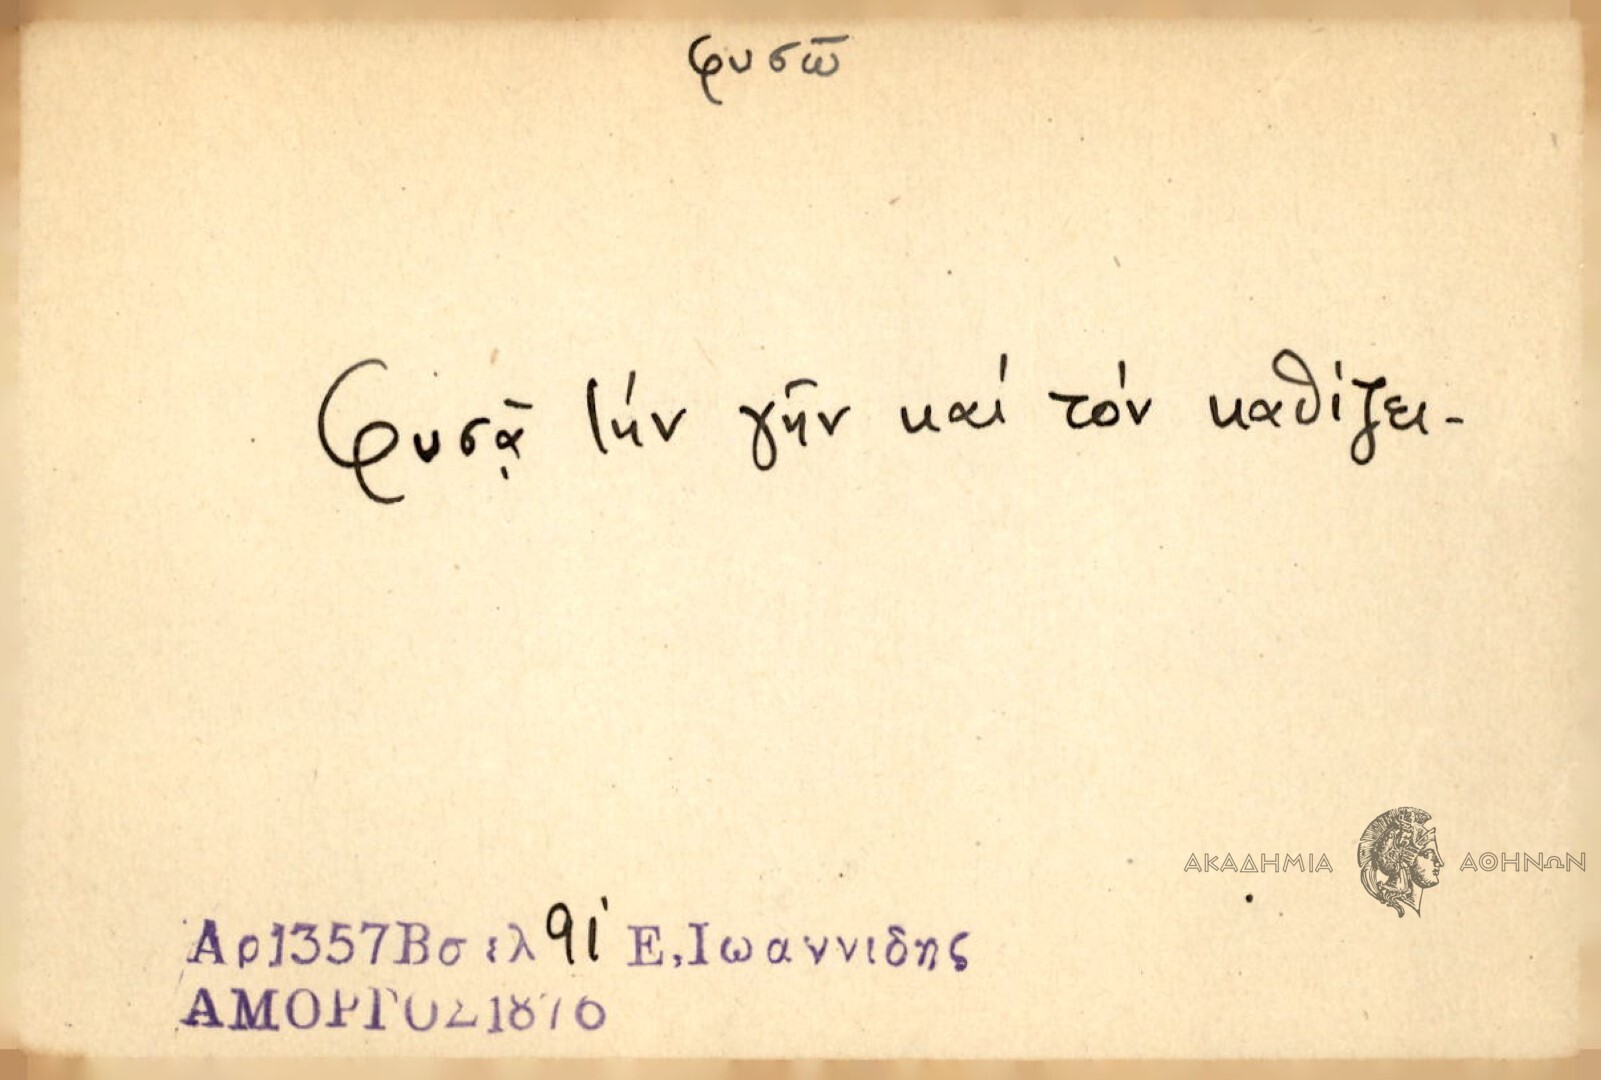 φυσῶ
Φυσᾷ τήν γῆν καί τόν καθίζει-
ΑΚΑΔΗΜΙΑ ΑΘΗΝΩΝ
Αρ1357Βσελ 91 Ε.Ιωαννιδης
ΑΜΟΡΓΟΣ1876